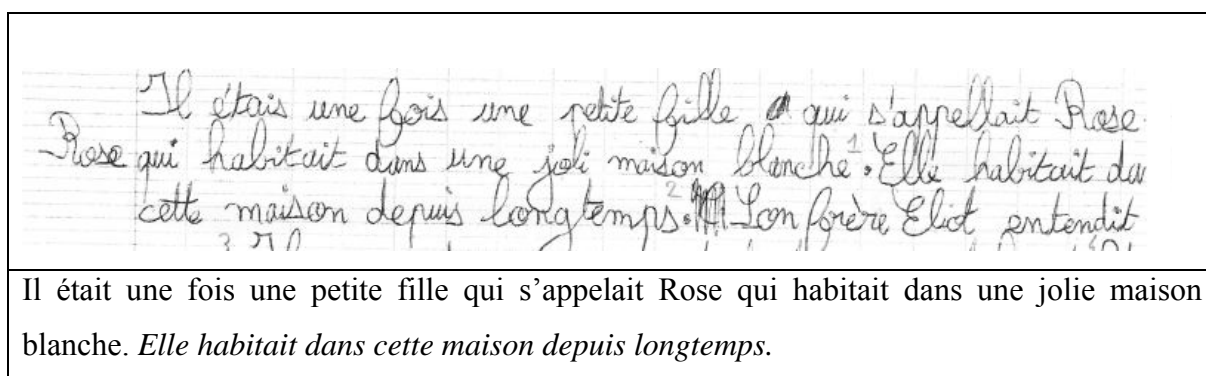 Il étais une fois une petite fille qui s'appellait Rose
Rose qui habitait dans une joli maison blanche 1. Elle habitait da
cette maison depuis longtemps 2. Son frère Eliot entendit
3 Il
Il était une fois une petite fille qui s’appelait Rose qui habitait dans une jolie maison
blanche. Elle habitait dans cette maison depuis longtemps.